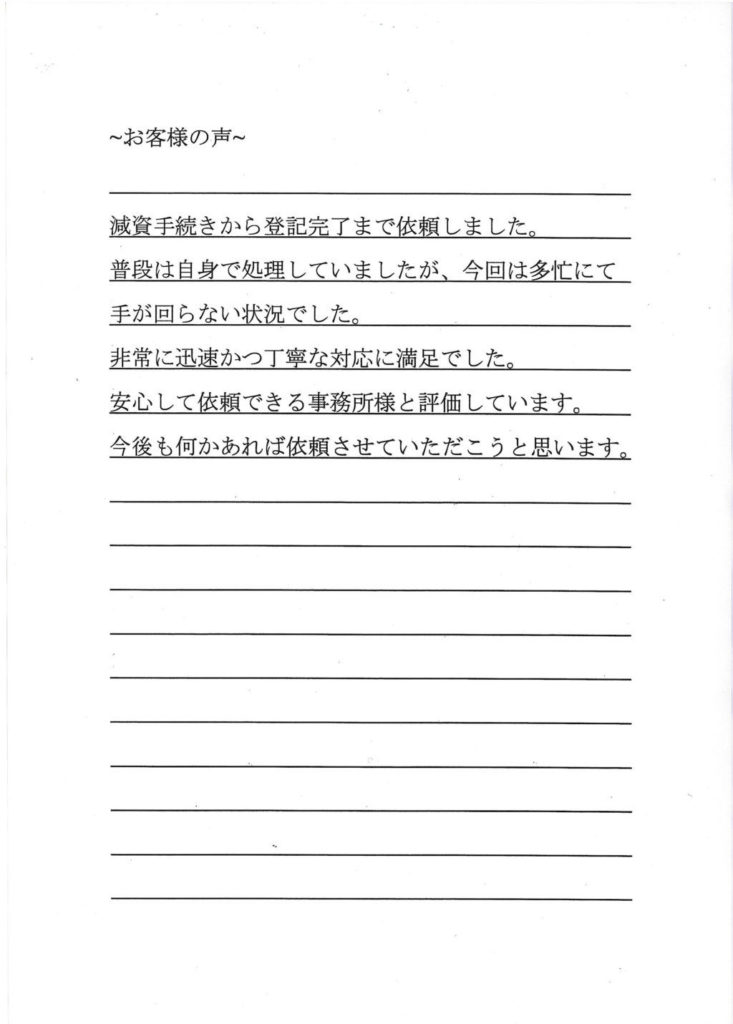 ~お客様の声~
減資手続きから登記完了まで依頼しました。
普段は自身で処理していましたが、今回は多忙にて
手が回らない状況でした。
非常に迅速かつ丁寧な対応に満足でした。
安心して依頼できる事務所様と評価しています。
今後も何かあれば依頼させていただこうと思います。